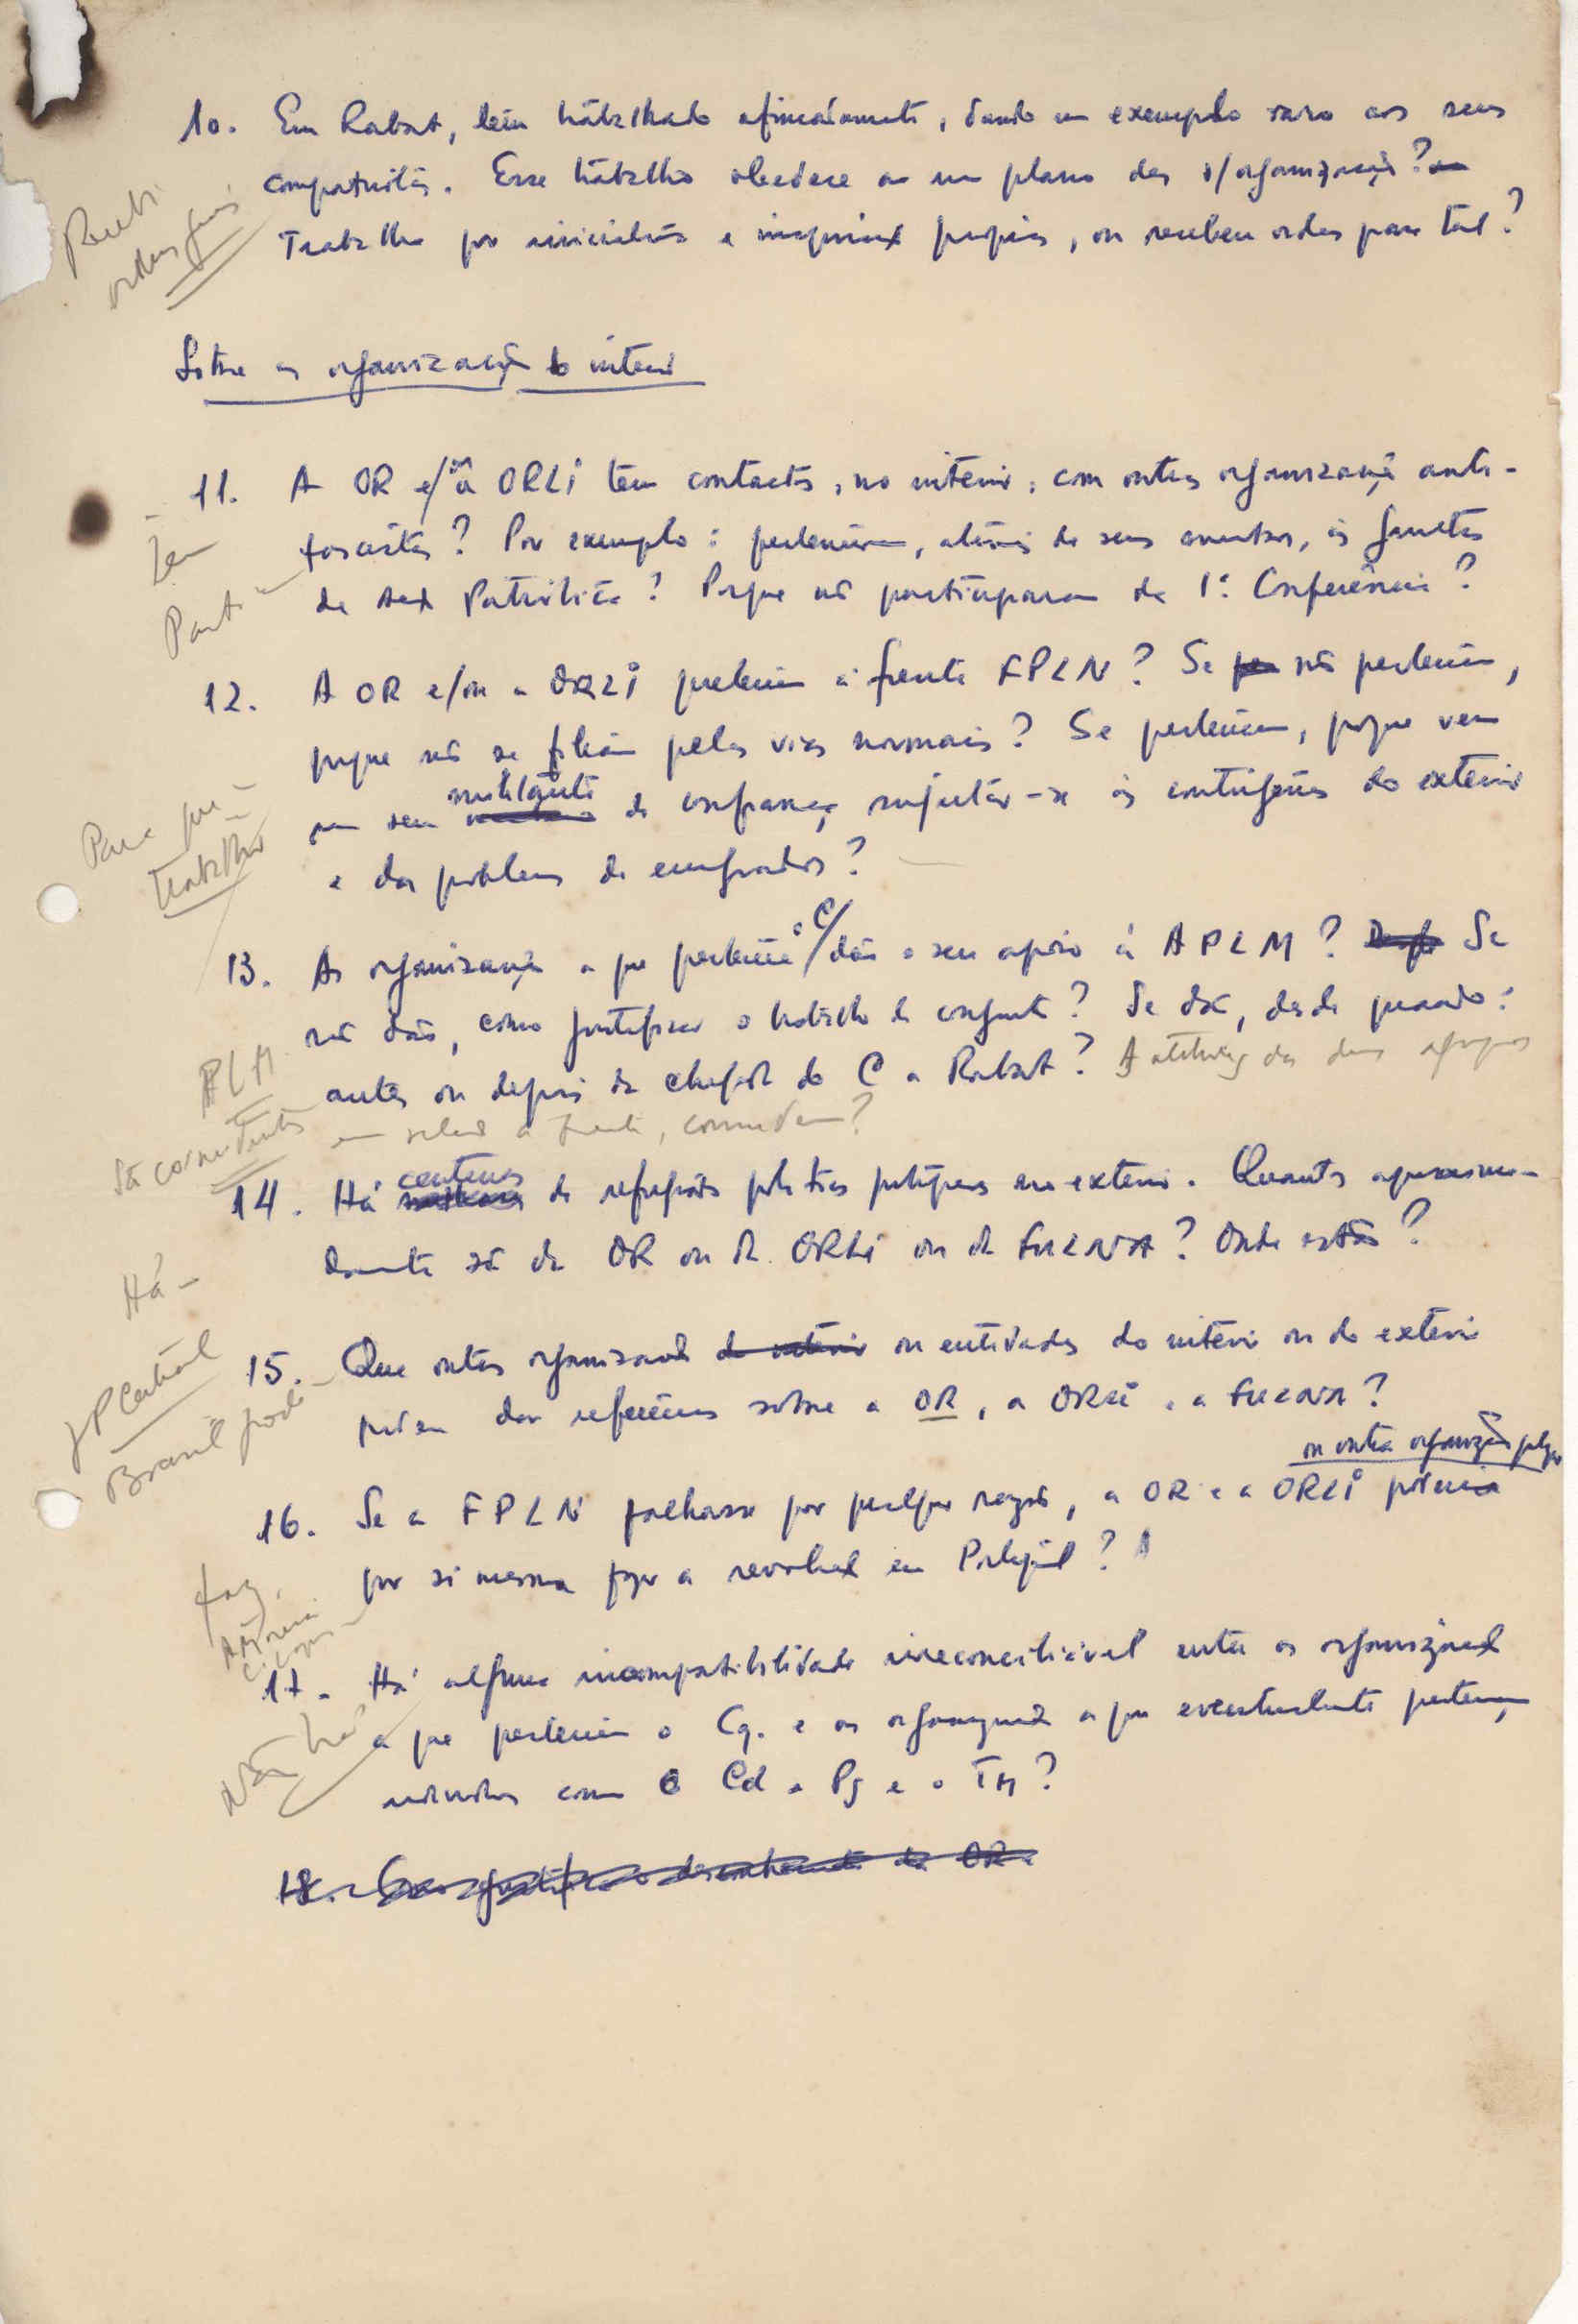 10. Em Rabat, tem trabalhado afincadamente, dando um exemplo raro aos seus
compatriotas. Esse trabalho obedece a um plano das s/organizações?
Trabalha por iniciativa e inspiração próprias, ou recebeu ordens para tal?
Recebi
ordens
Sobre as organizações do interior
11. A OR e/ou a ORLI têm contactos, no interior, com outras organizações anti-
fascistas? Por exemplo: pertenciam, através de seus membros, às Juntas
de Acção Patriótica? Porque não participaram da 1ª Conferência?
Tem
Part
12. A OR e/ou a ORLI pertencem à frente FPLN? Se não pertencem,
porque não se filiam pelas vias normais? Se pertencem, porque vem
um seu militante de confiança sujeitar-se às contingências do exterior
e dos problemas de emigrados?
Para que
trabalhar
13. As organizações a que pertence o C/ dão o seu apoio à APLM? Se
não dão, como justificar o trabalho de conjunto? Se dão, desde quando:
antes ou depois da chegada do C a Rabat? A atitude dos dois grupos
em relação à Frente, coincidem?
São coincidentes
14. Há centenas de refugiados políticos portugueses no exterior. Quantos aproxima-
damente são da OR ou da ORLI ou da FULNA? Onde estão?
Há -
15. Que outras organizações ou entidades do interior ou do exterior
podem dar referências sobre a OR, a ORLI e a FULNA?
JPCentral
Brasil pode
16. Se a FPLN falhasse por qualquer razão, a OR e a ORLI ou outra organização poderia
por si mesma fazer a revolução em Portugal?
faz
17. Há alguma incompatibilidade irreconciliável entre as organizações
a que pertencem o Cq. e as organizações a que eventualmente pertençam
indivíduos como o Cd o Pg e o TM?
Não há